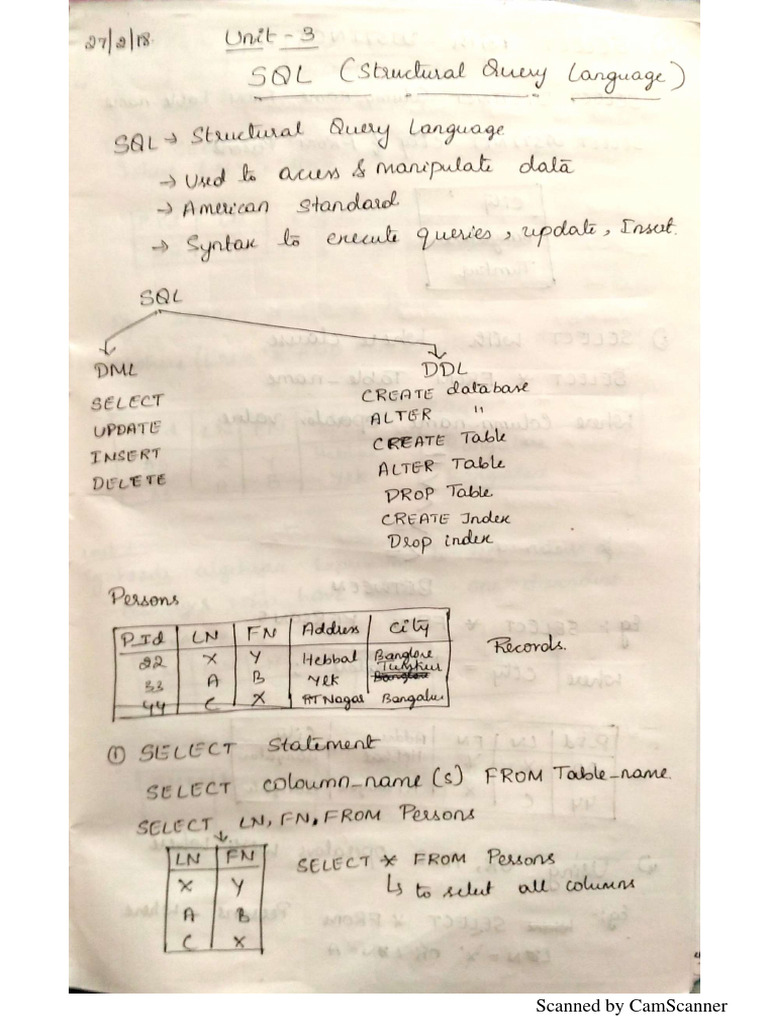 27/2/18
Unit - 3
SQL (Structural Query Language)
SQL → Structural Query Language
→ Used to access & manipulate data
→ American Standard
→ Syntax to execute queries, update, Insert.
SQL
DML DDL
SELECT CREATE database
UPDATE ALTER "
INSERT CREATE Table
DELETE ALTER Table
DROP Table
CREATE Index
Drop index
Persons
P_Id LN FN Address City
22 X Y Hebbal Banglore
33 A B Ylk Tumkur
44 C X RT Nagar Bangalur
Records.
① SELECT Statement
SELECT coloumn_name (s) FROM Table_name.
SELECT LN, FN, FROM Persons
LN FN
X Y
A B
C X
SELECT * FROM Persons
↳ to select all columns
Scanned by CamScanner